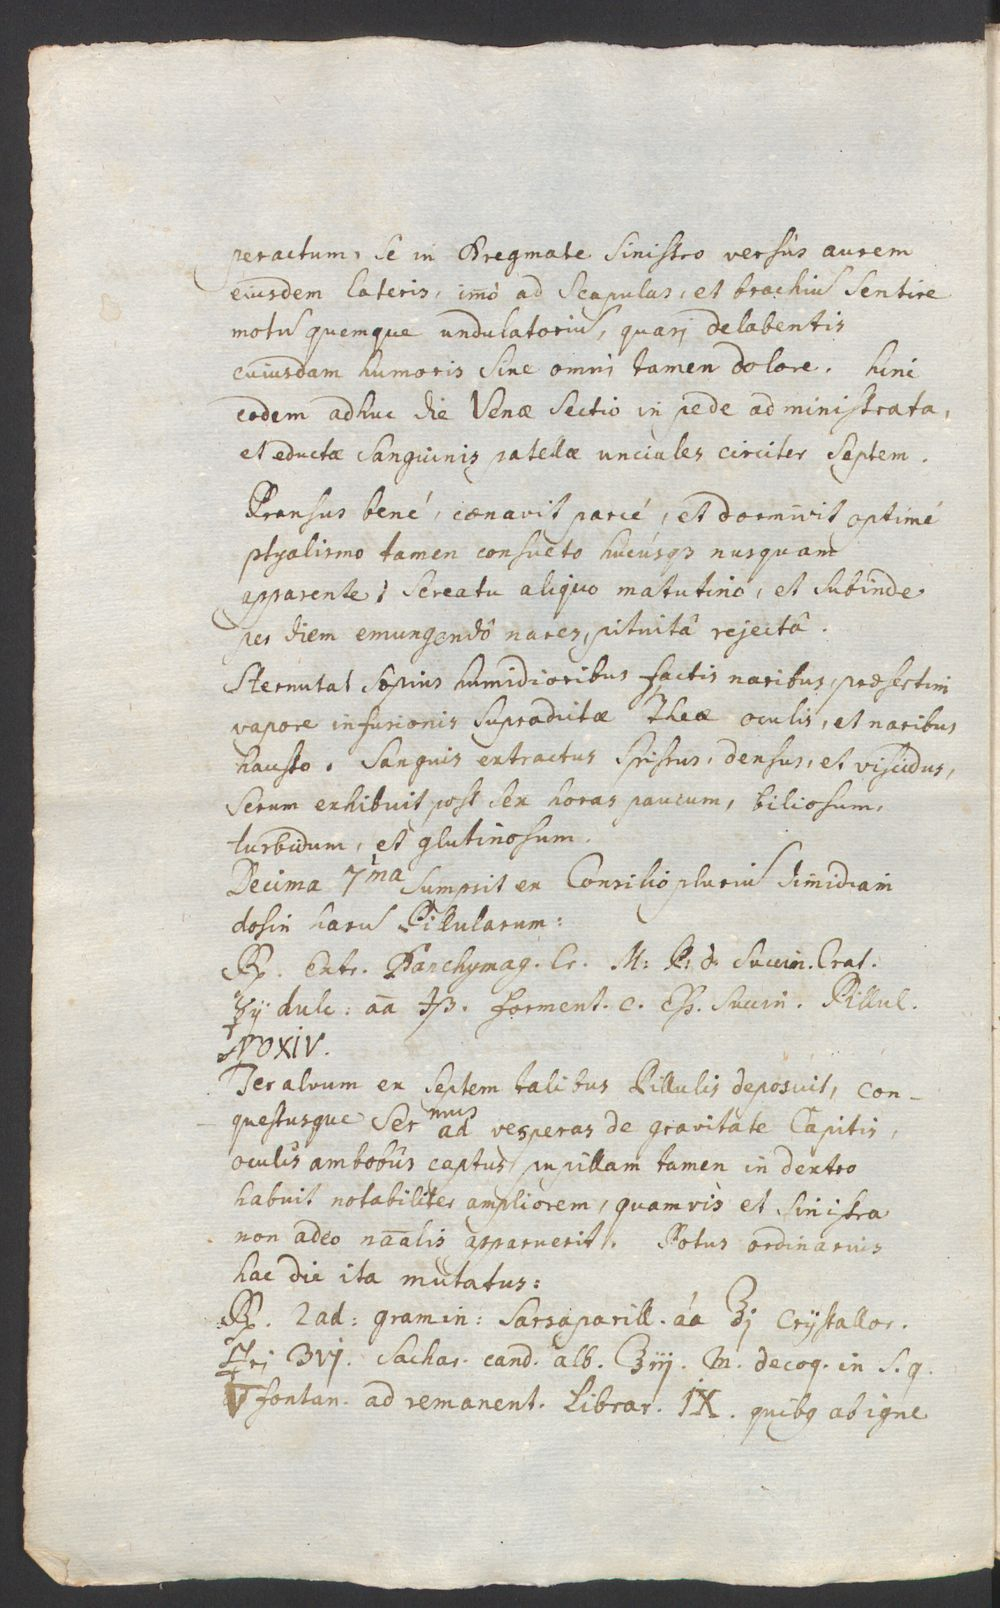 peractum, Se in Bregmate Sinistro versùs aurem
eiusdem lateris, imò ad Scapulas, et brachiū Sentire
motū quemque undulatoriū, quasi delabentis
cuiusdam humoris Sine omni tamen dolore. hinc
eodem adhuc die Venæ Sectio in pede administrata,
et eductæ Sanguinis patellæ unciales circiter Septem.
Pransus bené, cœnavit parcé, et dormivit optimé
ptyalismo tamen consueto hucúsqꝫ nusquam
apparente; Screatu aliquo matutino, et Subinde
per diem emungendô nares, pituitâ rejectâ.
Sternutat Sæpius humidioribus factis naribus, præsertim
vapore infusionis Supradictæ Theæ oculis, et naribus
hausto. Sanguis extractus Spissus, densus, et viscidus,
Serum exhibuit post Sex horas paucum, biliosum,
turbidum, et glutinosum.
Decima 7ma Sumpsit ex Consilio pluriū dimidiam
dosin harū Pillularum:
Rp. Extr. Panchymag. Cr. M: P. d. Succin. Crat.
☿ij dulc: aā ℈β. forment. c. Ess. Succin. Pillul.
No XIV.
Ter alvum ex Septem talibus Pillulis deposuit, con-
questusque Ser mus ad vesperas de gravitate Capitis,
oculis ambobùs captus, pupillam tamen in dextro
habuit notabiliter ampliorem, quamvis et Sinistra
non adeo nāalis apparuerit. Potus ordinarius
hac die ita mutatus:
Rp. Rad: gramin: Sarsaparill. áa ℥j Crÿstallor.
♁ri ʒvj. Sachar. cand. alb. ℥iij. M. decoq. in S. q.
▽ fontan. ad remanent. Librar. IX. quibꝫ ab igne